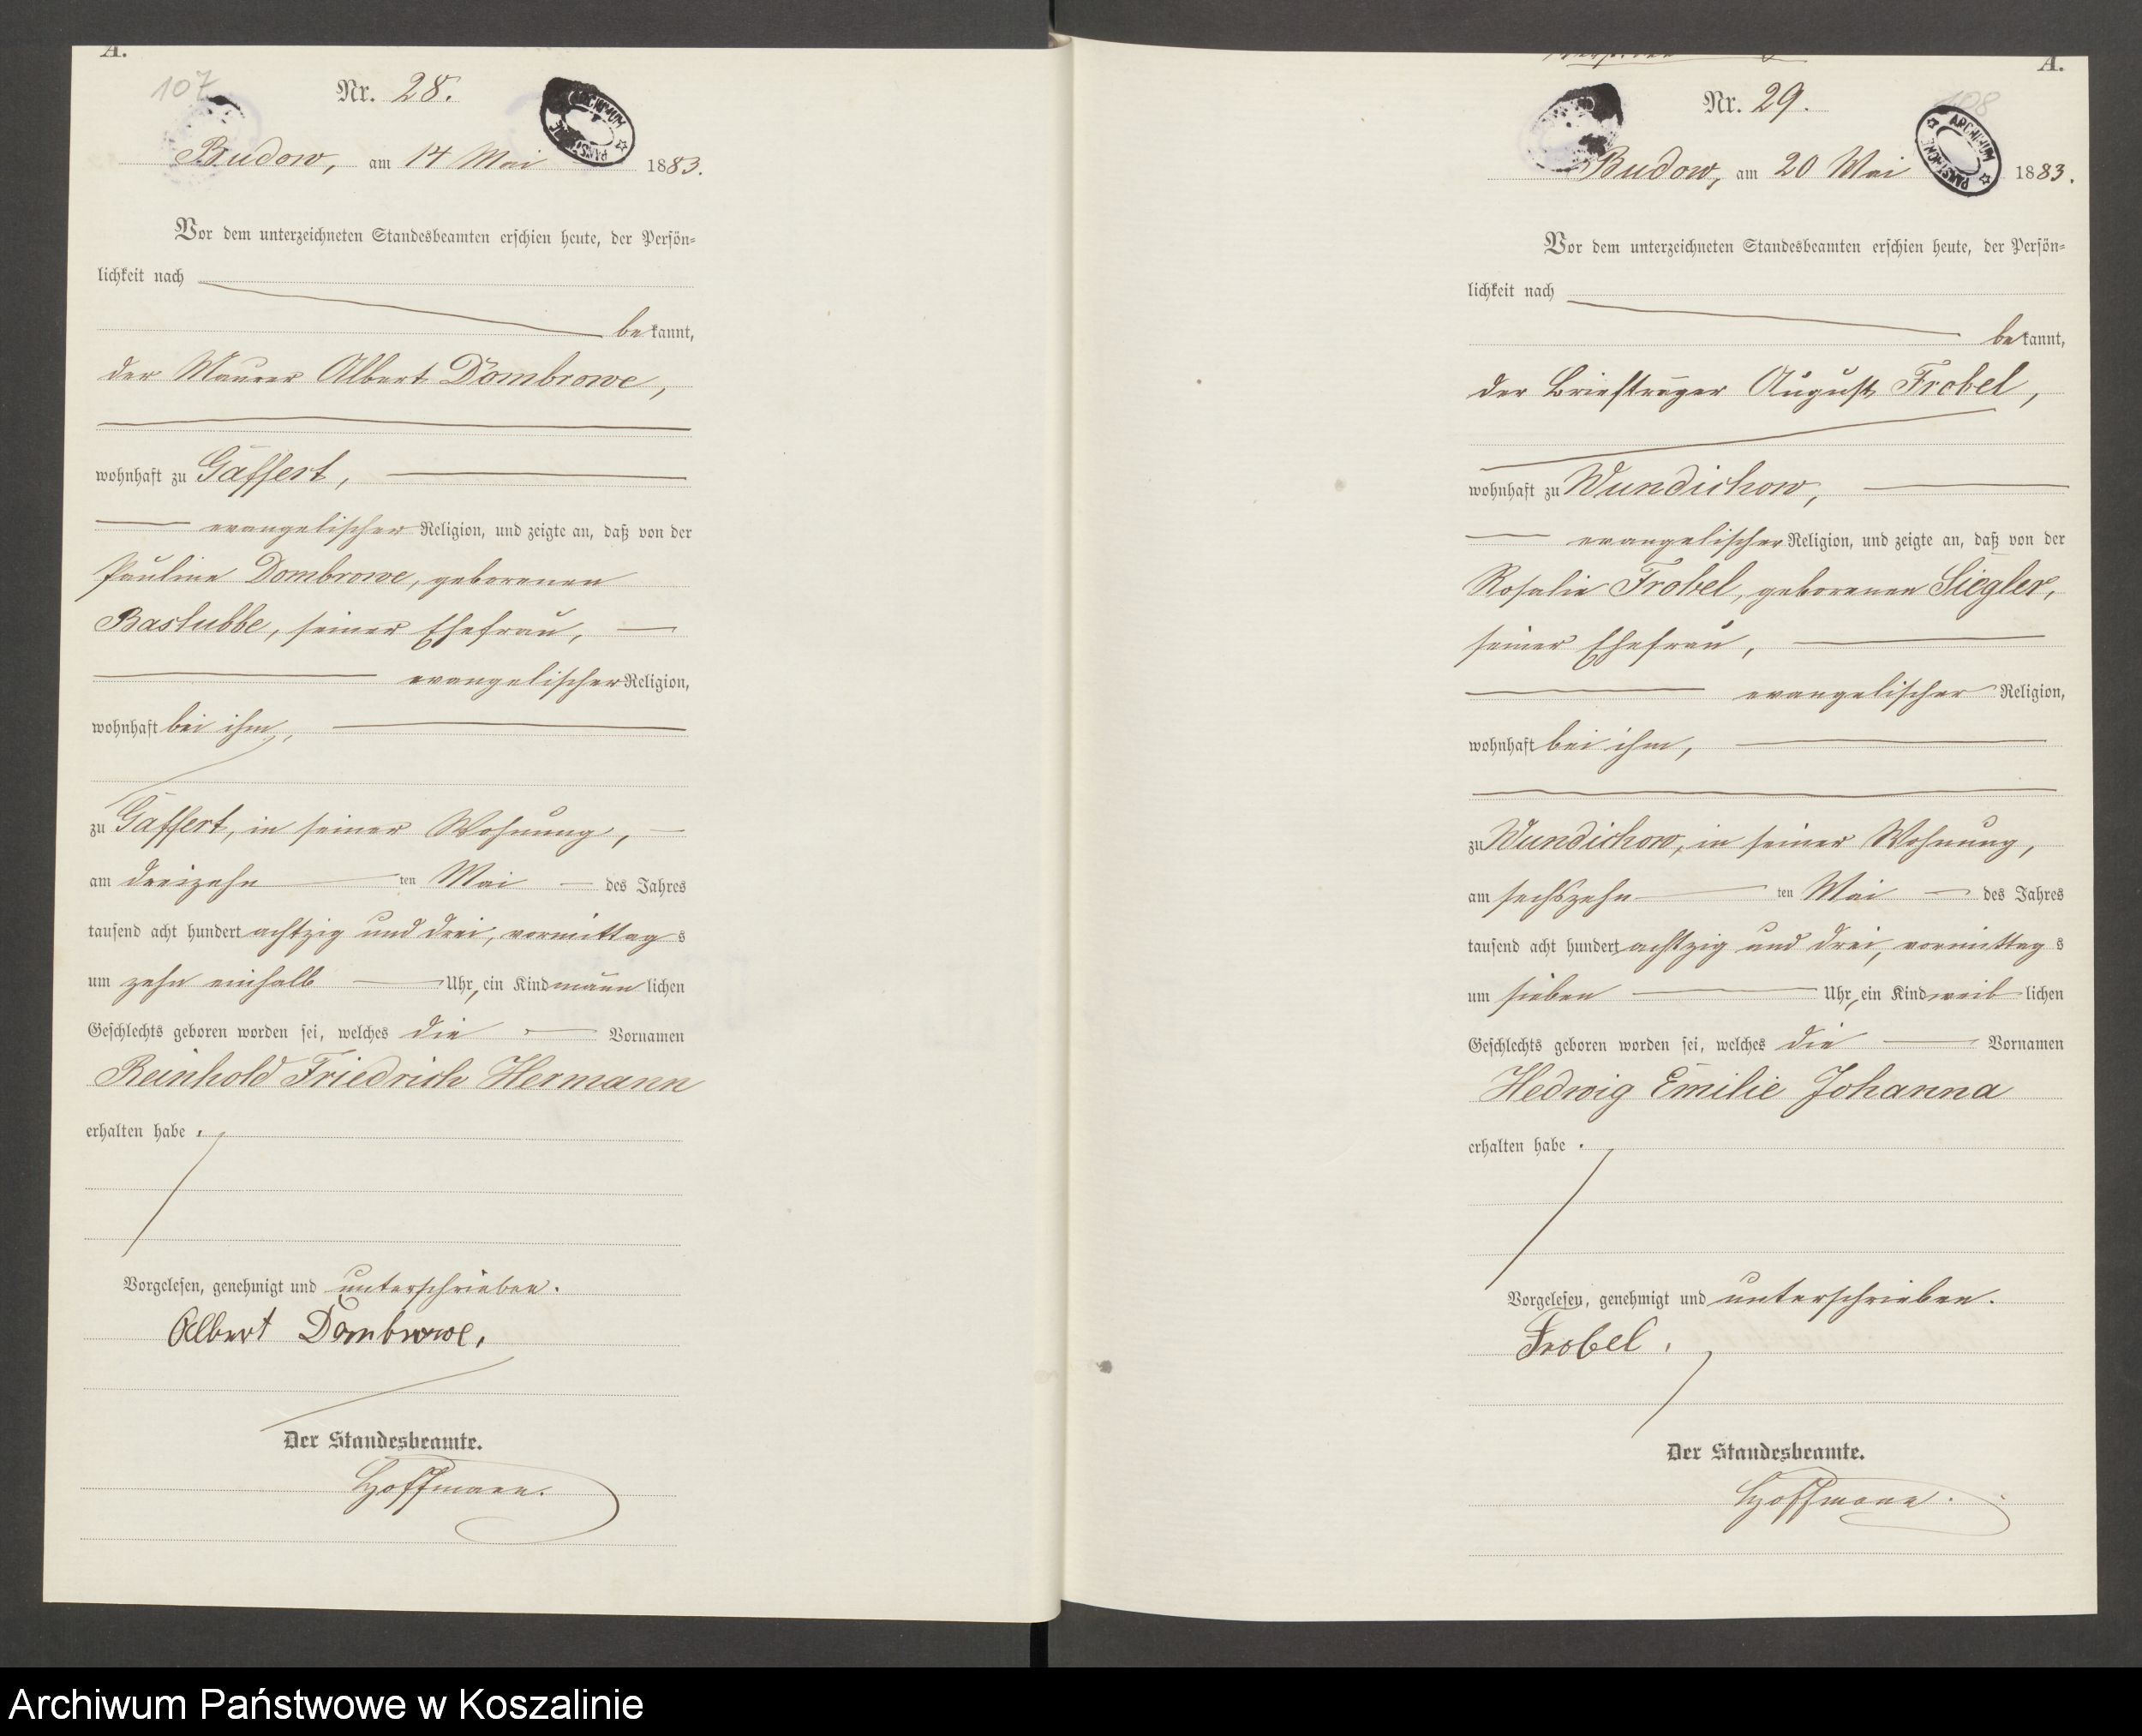 A.
107
Nr. 28.
ARCHIWUM
Budow, am 14 Mai 1883.
Vor dem unterzeichneten Standesbeamten erschien heute, der Persön=
lichkeit nach
bekannt,
der Maurer Albert Dombrowe,
wohnhaft zu Gaffert,
evangelischer Religion, und zeigte an, daß von der
Pauline Dombrowe, geborenen
Bastubbe, seiner Ehefrau,
evangelischer Religion,
wohnhaft bei ihm,
zu Gaffert, in seiner Wohnung,
am dreizehn ten Mai des Jahres
tausend acht hundert achtzig und drei, vormittags
um zehn einhalb Uhr, ein Kind männlichen
Geschlechts geboren worden sei, welches die Vornamen
Reinhold Friedrich Hermann
erhalten habe.
Vorgelesen, genehmigt und unterschrieben.
Albert Dombrowe.
Der Standesbeamte.
Hoffmann.
A.
108
Nr. 29.
ARCHIWUM PAŃSTWOWE
Budow, am 20 Mai 1883.
Vor dem unterzeichneten Standesbeamten erschien heute, der Persön=
lichkeit nach
bekannt,
der Briefträger August Frobel,
wohnhaft zu Wundichow,
evangelischer Religion, und zeigte an, daß von der
Rosalie Frobel, geborenen Siegler,
seiner Ehefrau,
evangelischer Religion,
wohnhaft bei ihm,
zu Wundichow, in seiner Wohnung,
am sechszehn ten Mai des Jahres
tausend acht hundert achtzig und drei, vormittags
um sieben Uhr, ein Kind weiblichen
Geschlechts geboren worden sei, welches die Vornamen
Hedwig Emilie Johanna
erhalten habe.
Vorgelesen, genehmigt und unterschrieben.
Frobel.
Der Standesbeamte.
Hoffmann.
Archiwum Państwowe w Koszalinie